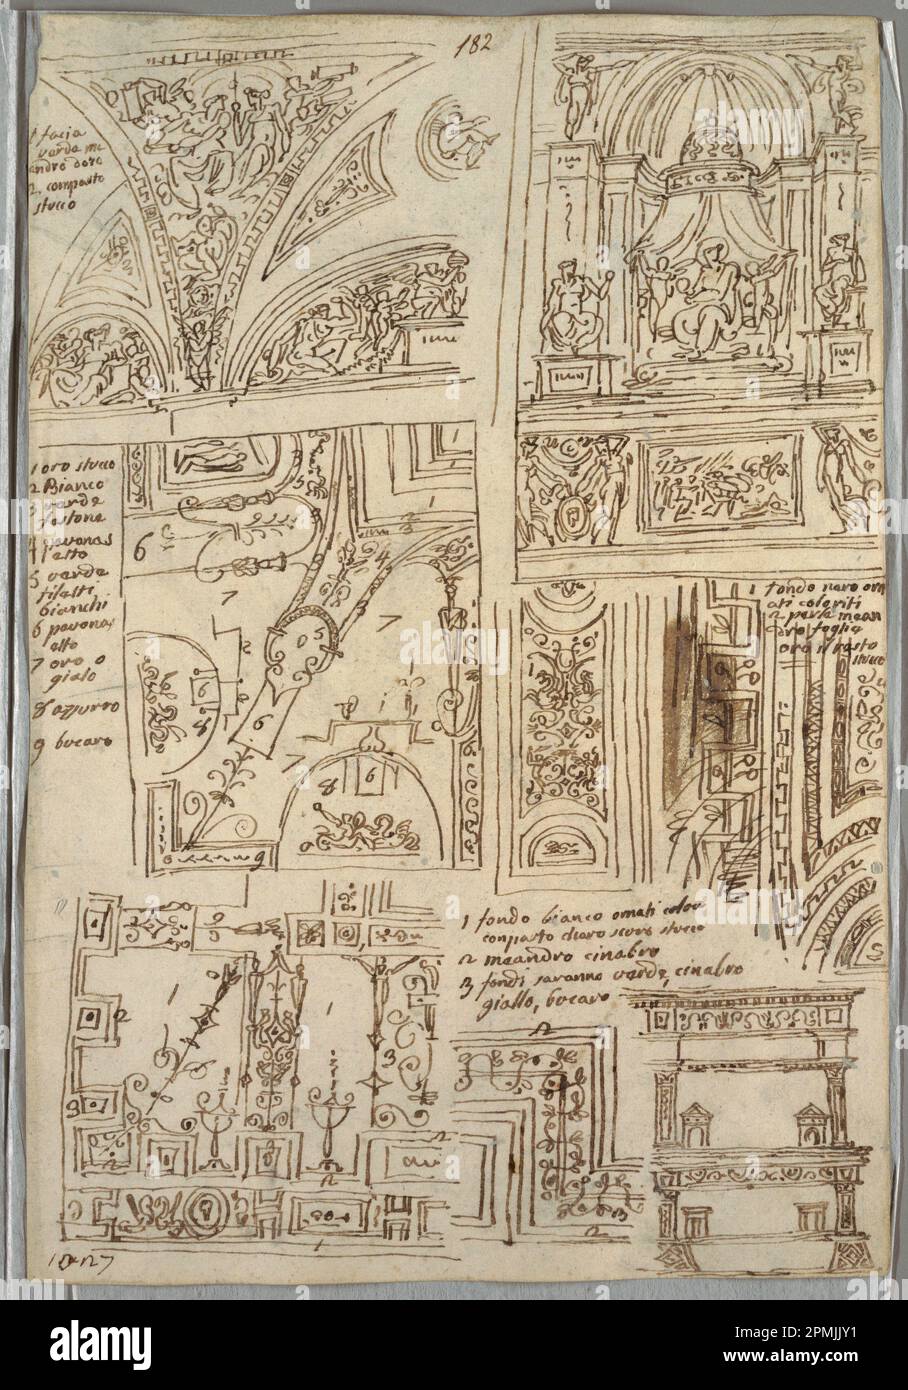 182
1 facia
verde me
andro doro
2 composto
stucco
1 oro stucco
2 Bianco
3 verde
festone
4 pavonas
etto
5 verde
filetti
bianchi
6 pavonaz
etto
7 oro o
gialo
8 azzurro
9 bucaro
1 fondo nero orn
ati coloriti
2 perle mean
dro foglie
oro il resto
stucco
1 fondo bianco ornati color
conparto chiaro scuro stucco
2 meandro cinabro
3 fondi saranno verde, cinabro
giallo, bucaro
alamy
Image ID: 2PMJJY1
www.alamy.com